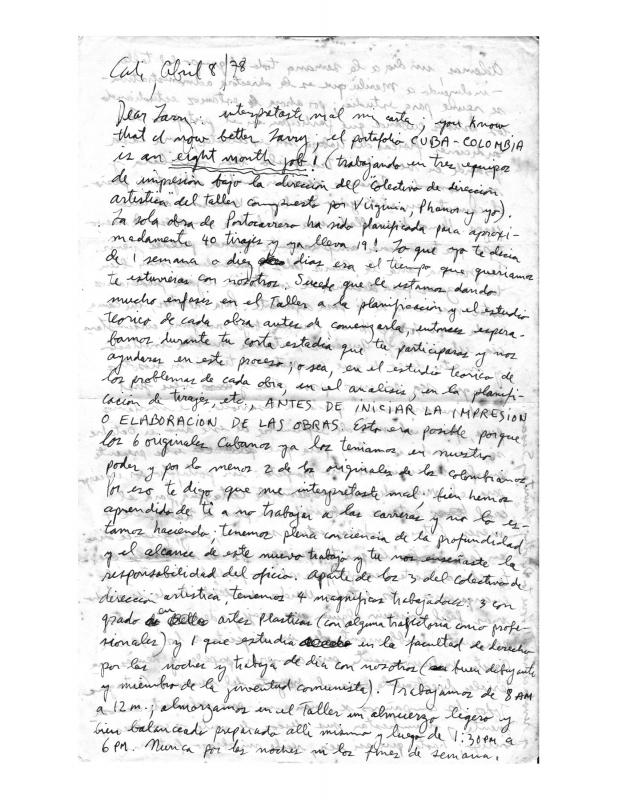 Cali, Abril 8/78
Dear Larry: interpretaste mal mi carta; you know
that I now better Larry, el portafolio CUBA-COLOMBIA
is an eight month job! (trabajando en tres equipos
de impresión bajo la dirección del "Colectivo de dirección
artistica" del taller compuesto por Virginia, Phanor y yo).
La sola obra de Portocarrero ha sido planificada para aproxi-
madamente 40 tirajes y ya lleva 19! Lo que yo te decia
de 1 semana o diez dias era el tiempo que queriamos
te estuvieras con nosotros. Sucede que le estamos dando
mucho enfasis en el Taller a la planificación y el estudio
teorico de cada obra antes de comenzarla, entonces espera-
bamos durante tu corta estadia que tu participaras y nos
ayudaras en este proceso; o sea, en el estudio teorico de
los problemas de cada obra, en el analisis, en la planifi-
cación de tirajes, etc. ANTES DE INICIAR LA IMPRESION
O ELABORACION DE LAS OBRAS. Esto era posible porque
los 6 originales Cubanos ya los teniamos en nuestro
poder y por lo menos 2 de los originales de los colombianos,
por eso te digo que me interpretaste mal: bien hemos
aprendido de ti a no trabajar a las carreras y no lo es-
tamos haciendo; tenemos plena conciencia de la profundidad
y el alcance de este nuevo trabajo y tu nos enseñaste la
responsabilidad del oficio. Aparte de los 3 del colectivo de
dirección artistica, tenemos 4 magnificos trabajadores: 3 con
grado en artes Plasticas (con alguna trayectoria como profe-
sionales) y 1 que estudia en la facultad de derecho
por las noches y trabaja de dia con nosotros (buen dibujante
y miembro de la juventud comunista). Trabajamos de 8 AM
a 12 m.; almorzamos en el Taller un almuerzo ligero y
bien balanceado preparado alli mismo y luego de 1:30 PM a
6 PM. Nunca por las noches ni los fines de semana.